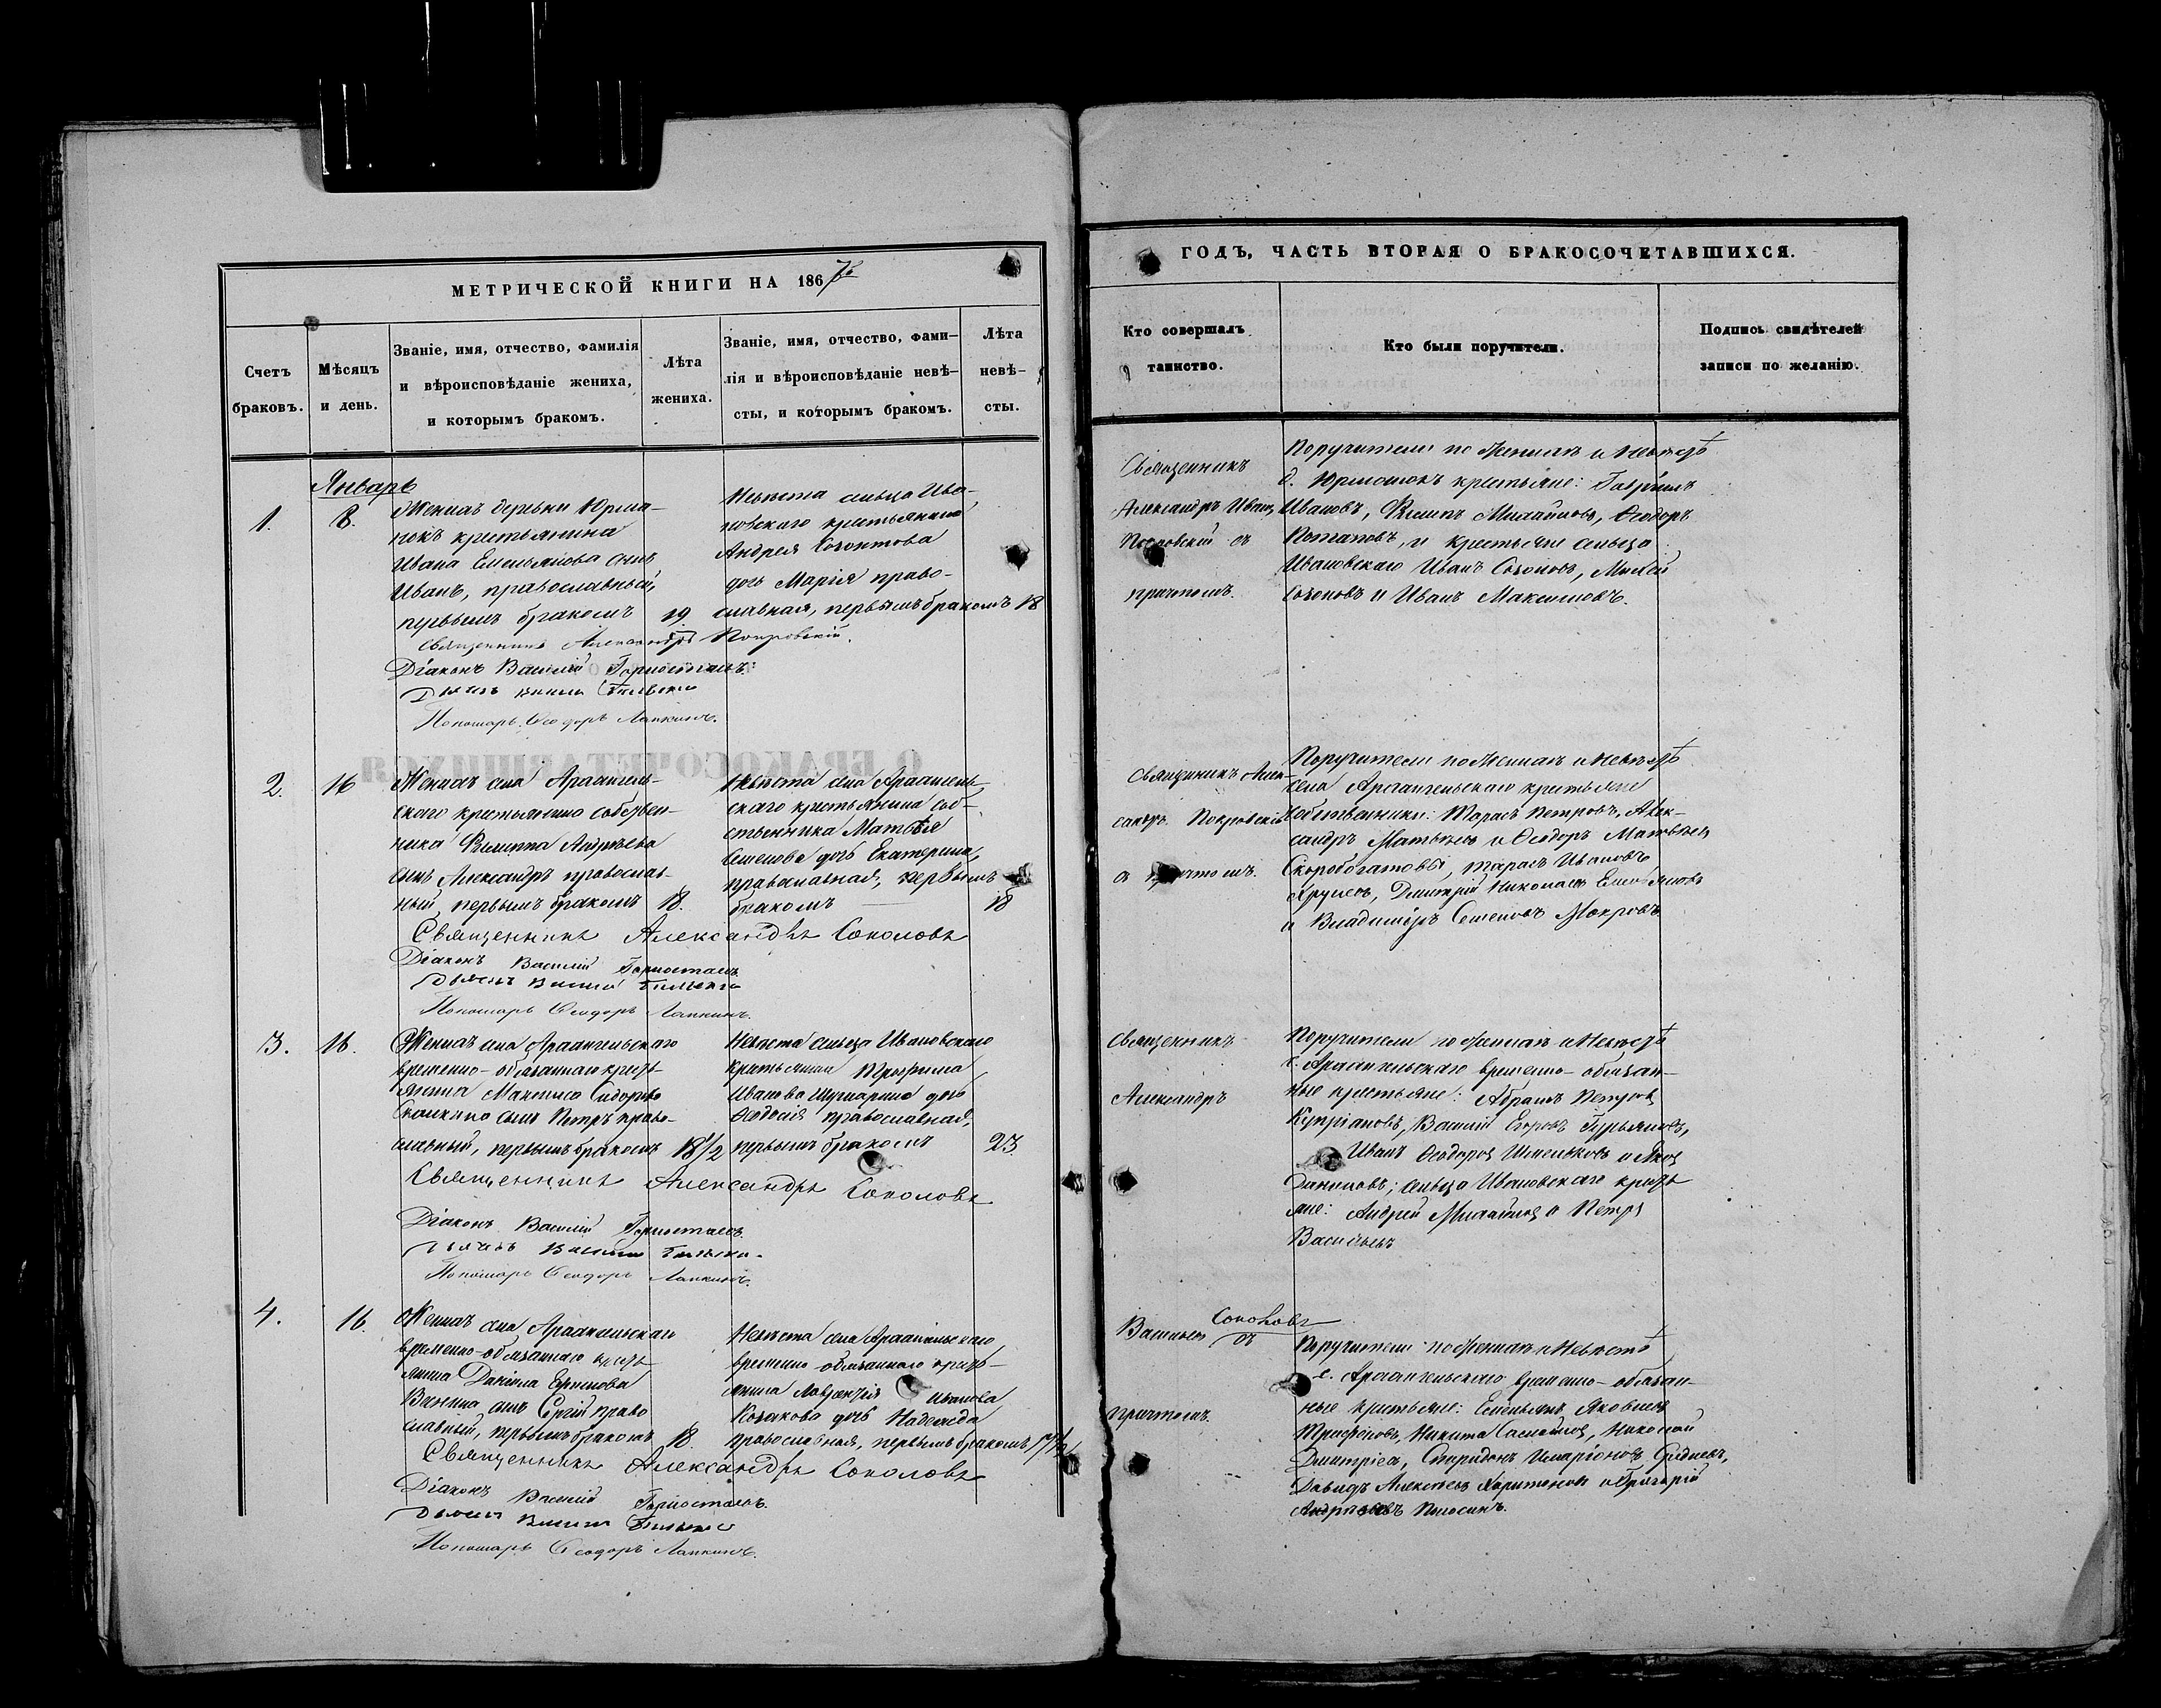 МЕТРИЧЕСКОЙ КНИГИ НА 186
Счетъ
браковъ.
Мѣсяцъ
и день.
Званіе, имя, отчество, фамилія
и вѣроисповѣданіе жениха,
и которымъ бракомъ.
Лѣта
жениха.
Званіе, имя, отчество, фами-
лія и вѣроисповѣданіе невѣ-
сты, и которымъ бракомъ.
Лѣта
невѣ-
сты.
Январь
1.
8.
Женихъ деревни Юрма-
нокъ крестьянина
Ивана Емельянова сынъ
Иванъ, православный,
первымъ бракомъ
19
Невѣста сельца Ива-
новскаго крестьянина
Андрея Созонтова
дочь Марія право-
славная, первымъ бракомъ
18
Священникъ Александръ Покровскій.
Діаконъ Василій Горностаевъ.
Дьячекъ
Пономарь Ѳеодоръ Лапкинъ.
2.
16
Женихъ села Архангель-
скаго крестьянина собствен-
ника Филиппа Андреева
сынъ Александръ православ-
ный, первымъ бракомъ
18.
Невѣста села Архангель-
скаго крестьянина соб-
ственника Матвѣя
Семенова дочь Екатерина,
православная, первымъ
бракомъ
18
Священникъ Александръ Соколовъ
Діаконъ Василій Горностаевъ.
Дьячекъ
Пономарь Ѳеодоръ Лапкинъ.
3.
16.
Женихъ села Архангельскаго
временно-обязаннаго кресть-
янина Максима Сидорова
сынъ Петръ право-
славный, первымъ бракомъ
18 1/2
Невѣста сельца Ивановскаго
крестьянина Трофима
Иванова дочь
Ѳеодосія православная,
первымъ бракомъ
23.
Священникъ Александръ Соколовъ
Діаконъ Василій Горностаевъ.
Дьячекъ
Пономарь Ѳеодоръ Лапкинъ.
4.
16.
Женихъ села Архангельскаго
временно-обязаннаго кресть-
янина Даніила
сынъ Сергій право
славный, первымъ бракомъ
18.
Невѣста села Архангельскаго
временно обязаннаго кресть-
янина Лаврентія Иванова
Козакова дочь Надежда
православная, первымъ бракомъ,
17 1/2
Священникъ Александръ Соколовъ
Діаконъ Василій Горностаевъ.
Дьячекъ
Пономарь Ѳеодоръ Лапкинъ.
ГОДЪ, ЧАСТЬ ВТОРАЯ О БРАКОСОЧЕТАВШИХСЯ.
Кто совершалъ
таинство.
Кто были поручители.
Подпись свидѣтелей
записи по желанію.
Священникъ
Александръ
Покровскій съ
причтомъ.
Поручители по Женихѣ и Невѣстѣ
д. Юрманокъ крестьяне: Гавріилъ
Ивановъ, Филиппъ Михайловъ, Ѳеодоръ
Потаповъ, и крестьяне сельца
Ивановскаго Иванъ Созоновъ,
Созоновъ и Иванъ Максимовъ.
Священникъ Алек-
сандръ Покровскій
съ причтомъ.
Поручители по Женихѣ и Невѣстѣ
села Архангельскаго крестьяне
собственники: Тарасъ Петровъ, Алек-
сандръ Матвѣевъ и Ѳеодоръ Матвѣевъ
Скоробогатовы, Тарасъ Ивановъ
Дмитрій Николаевъ Емельяновъ
и Владиміръ Семеновъ Мокровъ
Священникъ
Александръ
Поручители по Женихѣ и Невѣстѣ
с. Архангельскаго временно-обязан-
ные крестьяне: Абрамъ Петровъ
Купріановъ, Василій Егоровъ Гурьяновъ,
Иванъ Ѳеодоровъ Шмельковъ и Яковъ
Даниловъ; сельца Ивановскаго кресть
яне: Андрей Михайловъ и Петръ
Васильевъ
Васильевъ Соколовъ
съ
причтомъ.
Поручители по Женихѣ и Невѣстѣ
с. Архангельскаго временно-обязан-
ные крестьяне: Емельянъ Яковлевъ
Трифоновъ, Никита Николай
Спиридонъ Иларіоновъ
Давидъ Алексѣевъ Харитоновъ и Григорій
Андреевъ